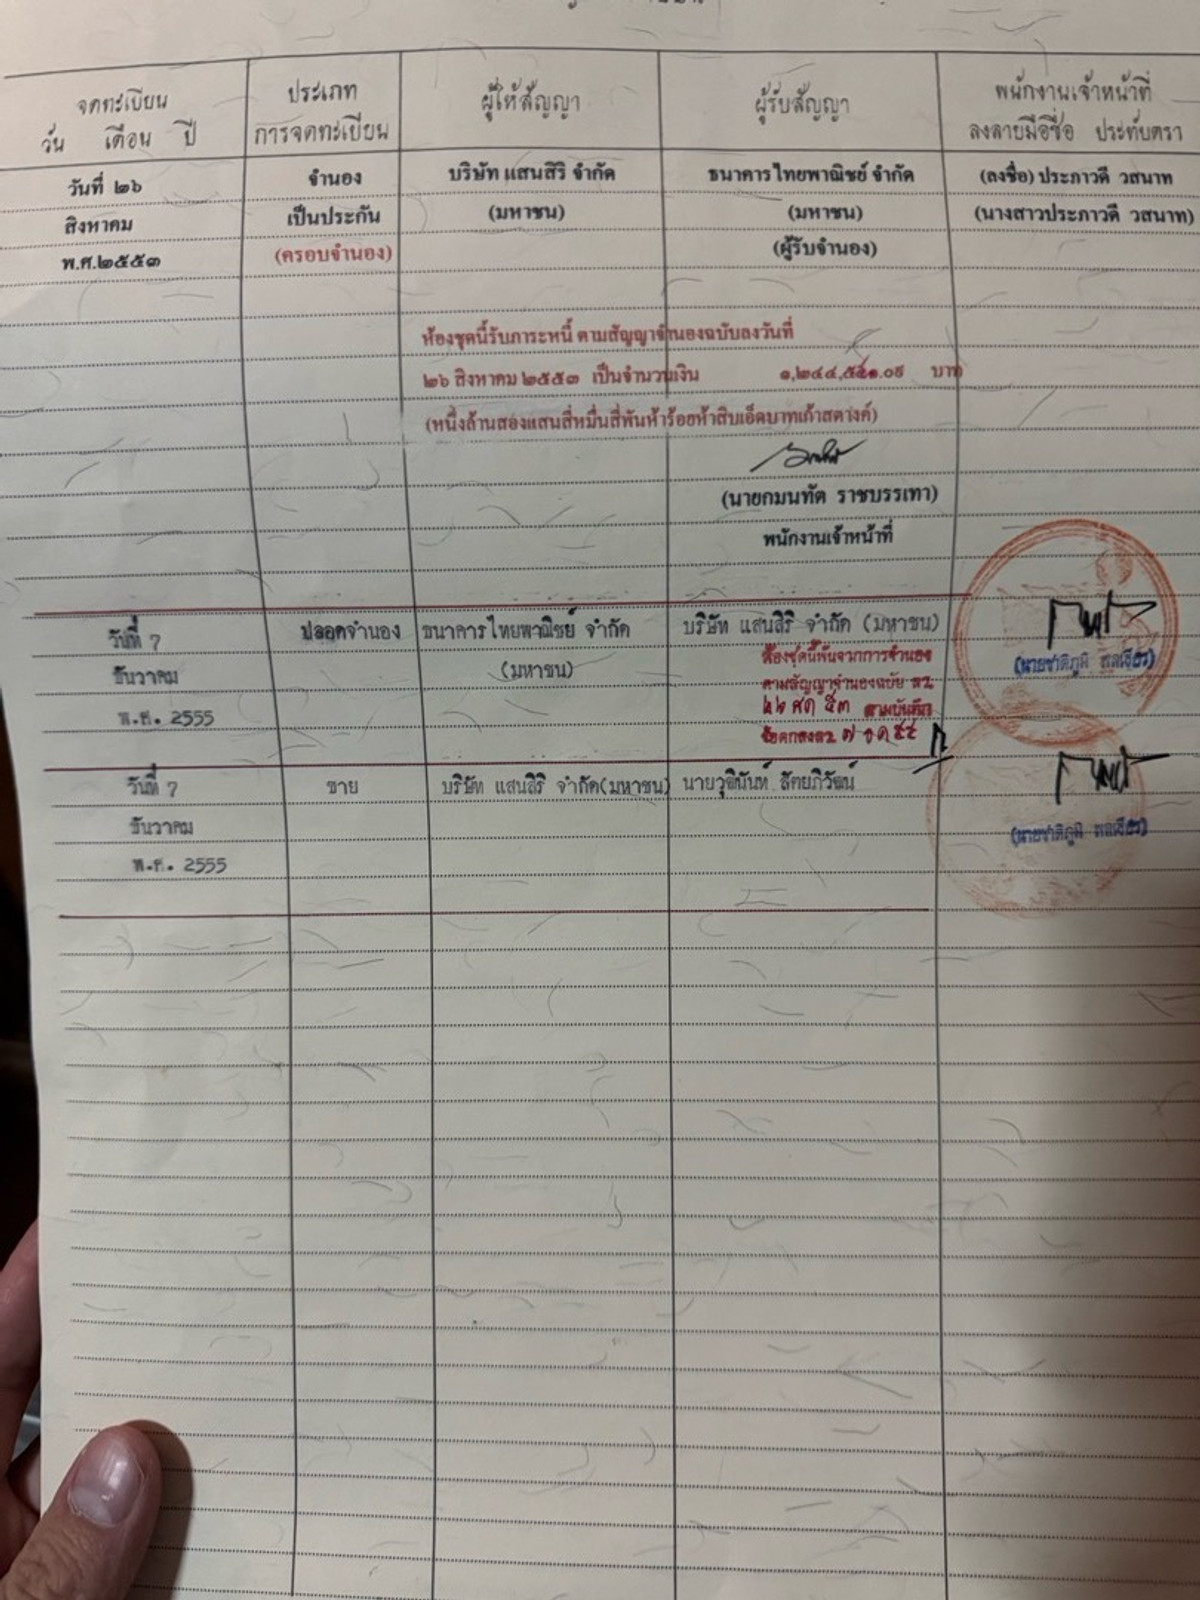 จดทะเบียน
วัน เดือน ปี
ประเภท
การจดทะเบียน
ผู้ให้สัญญา
ผู้รับสัญญา
พนักงานเจ้าหน้าที่
ลงลายมือชื่อ ประทับตรา
วันที่ ๒๖
สิงหาคม
พ.ศ.๒๕๕๓
จำนอง
เป็นประกัน
(ครอบจำนอง)
บริษัท แสนสิริ จำกัด
(มหาชน)
ธนาคารไทยพาณิชย์ จำกัด
(มหาชน)
(ผู้รับจำนอง)
(ลงชื่อ) ประภาวดี วสนาท
(นางสาวประภาวดี วสนาท)
ห้องชุดนี้รับภาระหนี้ ตามสัญญาจำนองฉบับลงวันที่
๒๖ สิงหาคม ๒๕๕๓ เป็นจำนวนเงิน ๑,๒๔๔,๕๕๑.๐๙ บาท
(หนึ่งล้านสองแสนสี่หมื่นสี่พันห้าร้อยห้าสิบเอ็ดบาทเก้าสตางค์)
(นายกมนทัต ราชบรรเทา)
พนักงานเจ้าหน้าที่
วันที่ 7
ธันวาคม
พ.ศ. 2555
ปลอดจำนอง
ธนาคารไทยพาณิชย์ จำกัด
(มหาชน)
บริษัท แสนสิริ จำกัด (มหาชน)
ห้องชุดนี้พ้นจากการจำนอง
ตามสัญญาจำนองฉบับ ลว
ตามบันทึก
ข้อตกลงลว ๗ ธค ๕๕
(นายชาติภูมิ
วันที่ 7
ธันวาคม
พ.ศ. 2555
ขาย
บริษัท แสนสิริ จำกัด(มหาชน)
นายวุฒินันท์ สัตยภิวัฒน์
(นายชาติภูมิ